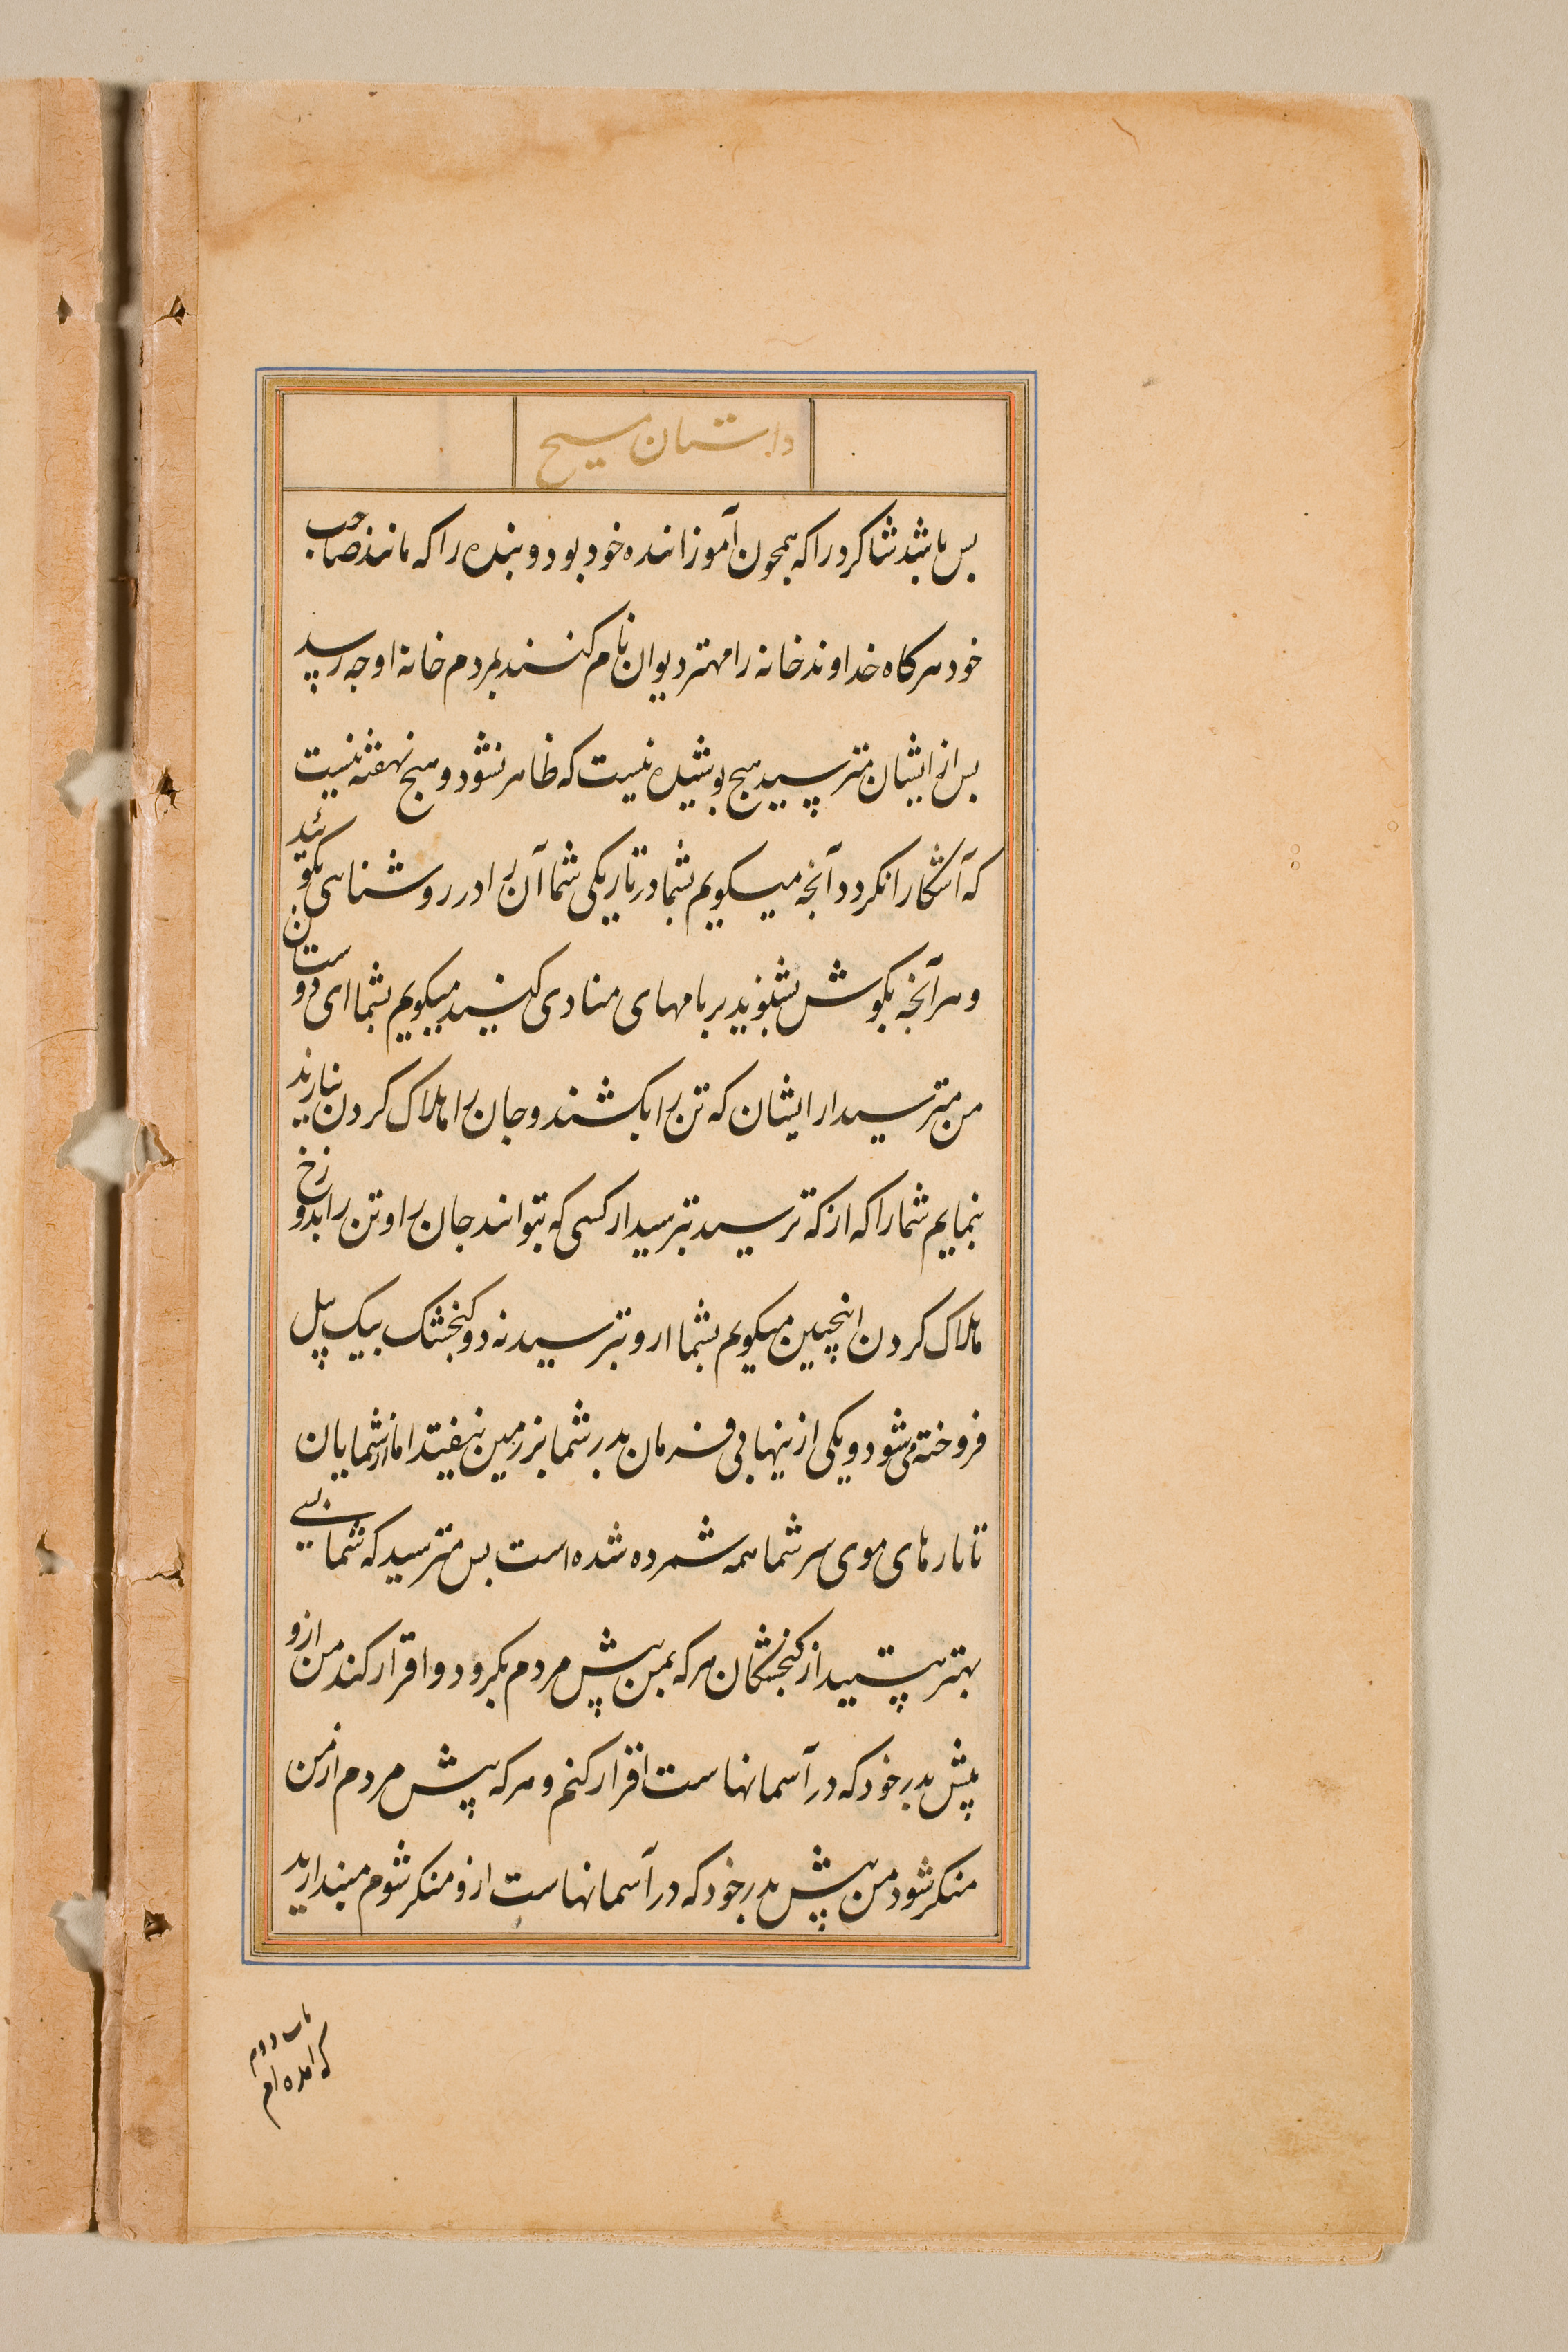 داستان مسیح
بس باشد شاکرد را که همچون آموزاننده خود بود و بنده را که مانند صاحب
خود هرکاه خداوند خانه را مهتر دیوان نام کنند بمردم خانهٔ او جه رسد
بس از ایشان مترسید هیج بوشیده نیست که ظاهر نشود و هیج نهفته نیست
که آشکارا نکردد آنجه میکویم بشما در تاریکی شما آن را در روشنایی بکوئید
و هر آنجه بکوش بشنوید بر بامهای منادی کنید میکویم بشما ای دوستان
من مترسید از ایشان که تن را بکشند و جان را هلاک کردن نیارند
بنمایم شما را که از که ترسید بترسید از کسی که بتواند جان را و تن را بدوزخ
هلاک کردن اینچنین میکویم بشما ازو بترسید نه دو کنجشک بیک پل
فروخته می شود و یکی ازینها بی فرمان بدر شما بر زمین نیفتد اما از شمایان
تا تارهای موی سر شما همه شمرده شده است بس مترسید که شما بسی
بهتر هستید از کنجشکان هر که بمن پیش مردم بکرود و اقرار کند من ازو
پیش بدر خود که در آسمانهاست اقرار کنم و هر که پیش مردم از من
منکر شود من پیش بدر خود که در آسمانهاست ازو منکر شوم مبندارید
که آمده ام